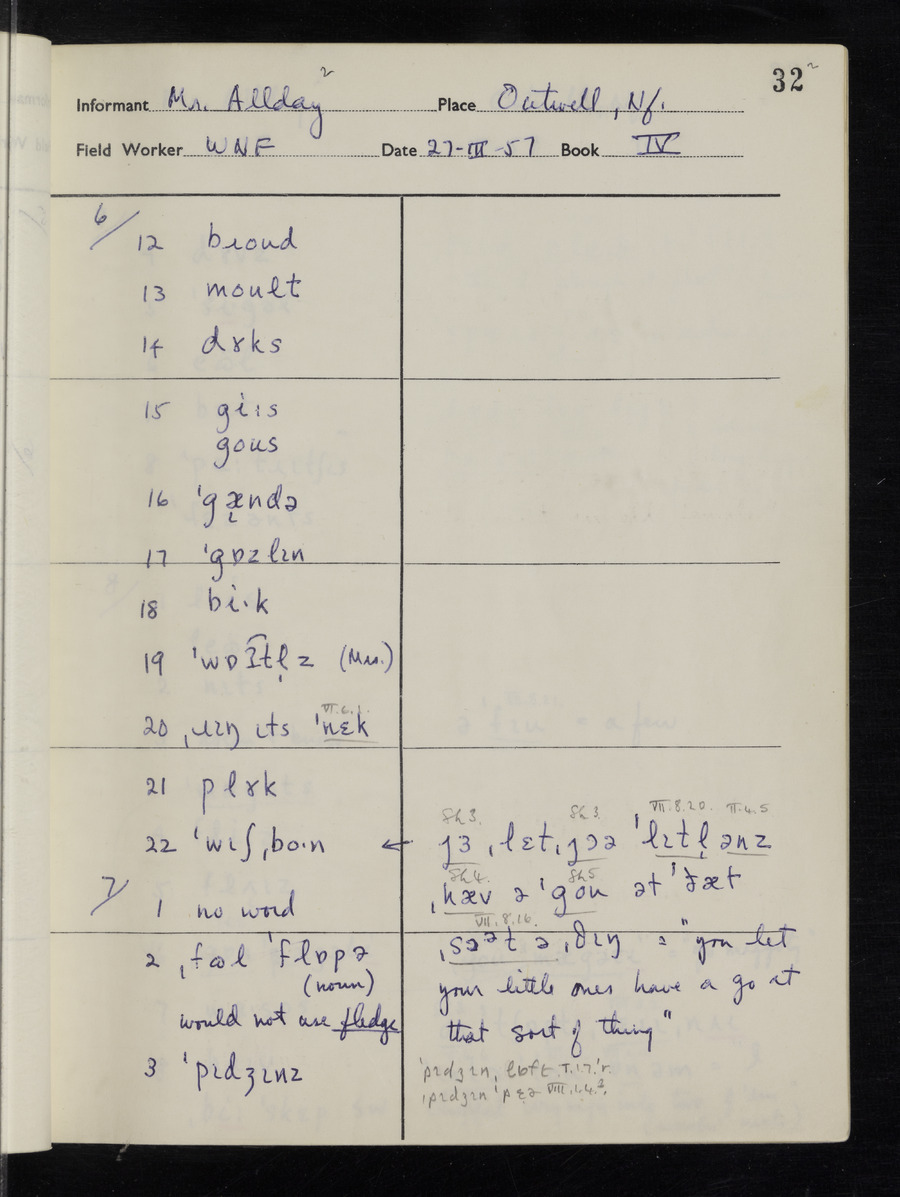 32 2
Informant Mr. Allday 2 Place Outwell, Nf.
Field Worker WNF Date 27-III-57 Book IV
6/ 12 bɹoud
13 moult
14 dɤks
15 gi:s
gous
16 ˈgændə
17 ˈgɒzlɪn
18 bi·k
19 ˈwɒʔtl̩z (Mrs.)
VI.6.1.
20 ˌɹɪŋ ɪts ˈnɛk
21 plɤk
Sh 3. Sh 3. VII.8.20. II.4.5
22 ˈwɪʃˌbo:n ← jɜ ˌlɛtˌjɔə ˈlɪtl̩ ənz
Sh 4. Sh 5
7/ 1 no word
ˌhæv ə ˈgou ət ˈðæt
VII.8.16.
2 ˌfɒl ˈflɒpə
(noun)
would not use fledge
ˌsɔət ə ˌθɪŋ = "you let
your little ones have a go at
that sort of thing"
3 ˈpɪdʒɪnz
ˈpɪdʒɪnˌlɒft I.1.7.ˈr.
ˌpɪdʒɪn ˈpɛə VIII.1.4.²